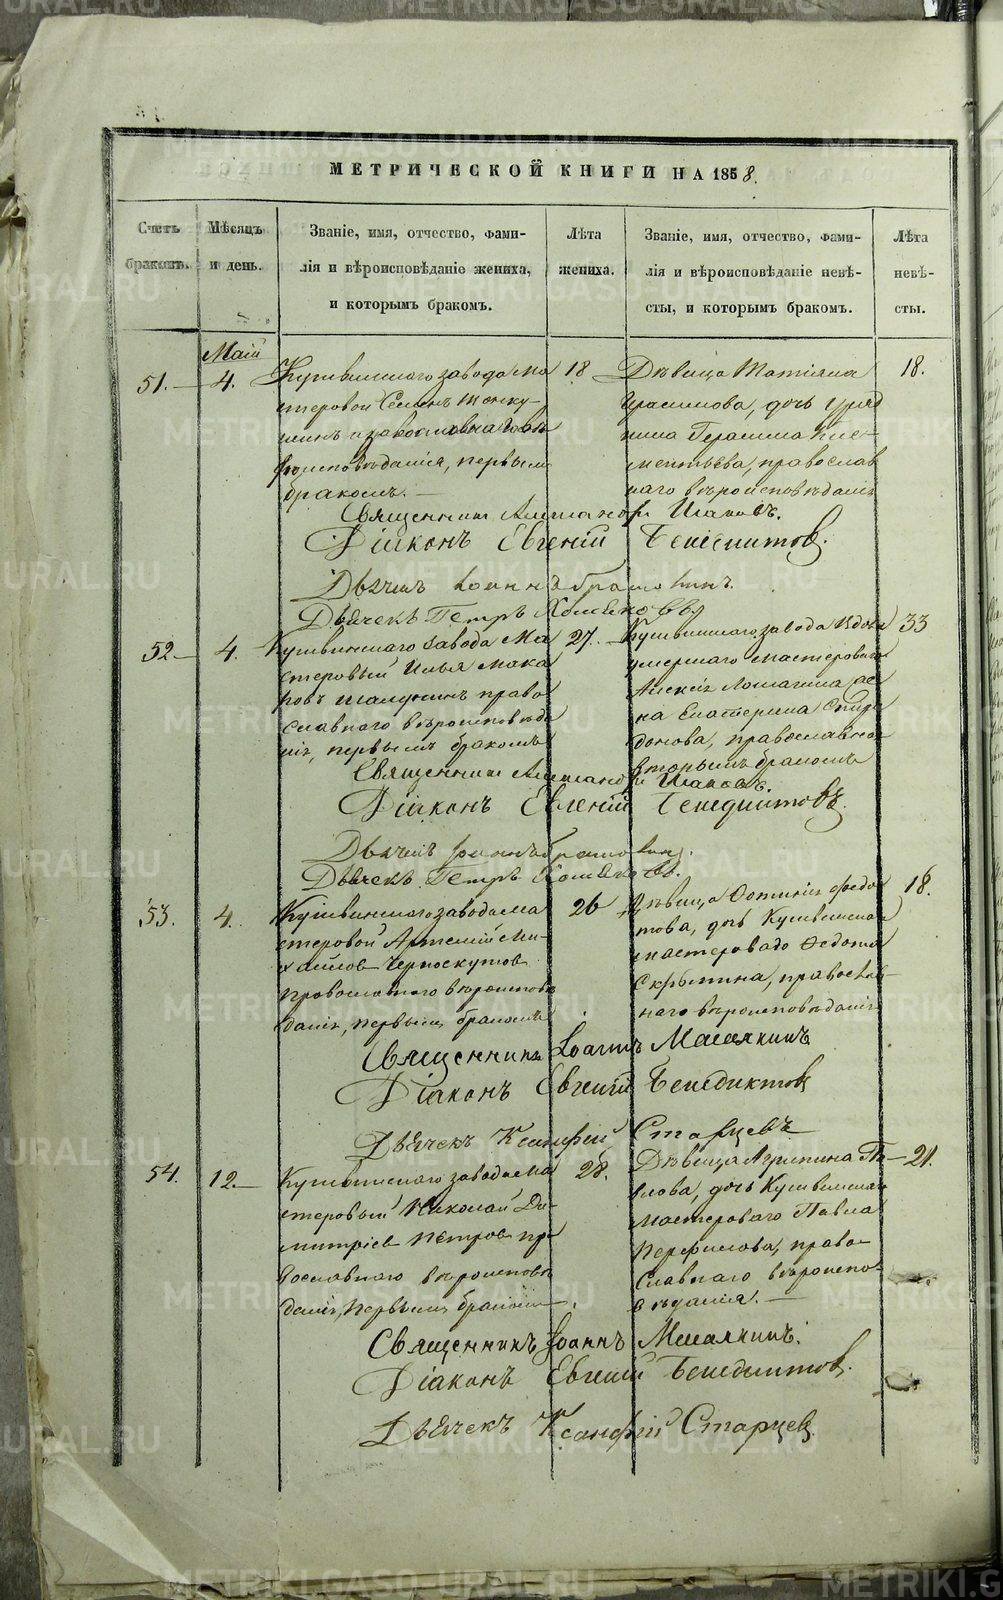 МЕТРИЧЕСКОЙ КНИГИ НА 1858.
Счетъ браковъ.
Мѣсяцъ и день.
Званіе, имя, отчество, фами-
лія и вѣроисповѣданіе жениха,
и которымъ бракомъ.
Лѣта жениха.
Званіе, имя, отчество, фами-
лія и вѣроисповѣданіе невѣ-
сты, и которымъ бракомъ.
Лѣта невѣ-
сты.
Май
51. 4.
Кушвинскаго завода ма
стеровой Семенъ
православнаго вѣ
роисповѣданія, первымъ
бракомъ.
18
Дѣвица Татіяна
Герасимова, дочь уряд
ника Герасима Кле-
ментьева, православ
наго вѣроисповѣданія
18.
Священник Александр
Діаконъ Евгеній Бенедиктов.
Дьячекъ Іоаннъ
Дьячекъ Петръ Хомяковъ
52 4.
Кушвинскаго завода Ма
стеровый Илья Мака
ровъ право
славнаго вѣроисповѣда
нія, первымъ бракомъ
27.
Кушвинскаго завода вдова
умершаго мастероваго
Алексѣя Ломагина
на Екатерина Спири
донова, православнаго
вторымъ бракомъ
33
Священник Александр
Діаконъ Евгеній Бенедиктовъ.
Дьячекъ
Дьячекъ Петръ Хомяковъ.
53. 4.
Кушвинскаго завода ма
стеровой Артемій Ми-
хайлов Черноскутов
православнаго вѣроисповѣ
данія, первымъ бракомъ
26
Дѣвица Фотинія Федо
това, дочь Кушвинскаго
мастероваго Федота
Скрыпина, православ-
наго вѣроисповѣданія
18.
Священникъ Іоаннъ
Діаконъ Евгеній Бенедиктов
Дьячекъ Ксанфій Старцевъ
54. 12.
Кушвинскаго завода ма
стеровый Николай Ди-
митріев Петров пра
вославнаго вѣроисповѣ
данія, первымъ бракомъ
28.
Дѣвица Агрипина Па
влова, дочь Кушвинскаго
мастероваго Павла
Перфилова, право-
славнаго вѣроиспо
вѣданія.
21.
Священникъ Іоаннъ
Діаконъ Евгеній Бенедиктов.
Дьячекъ Ксанфій Старцев
METRIKI.GASO-URAL.RU